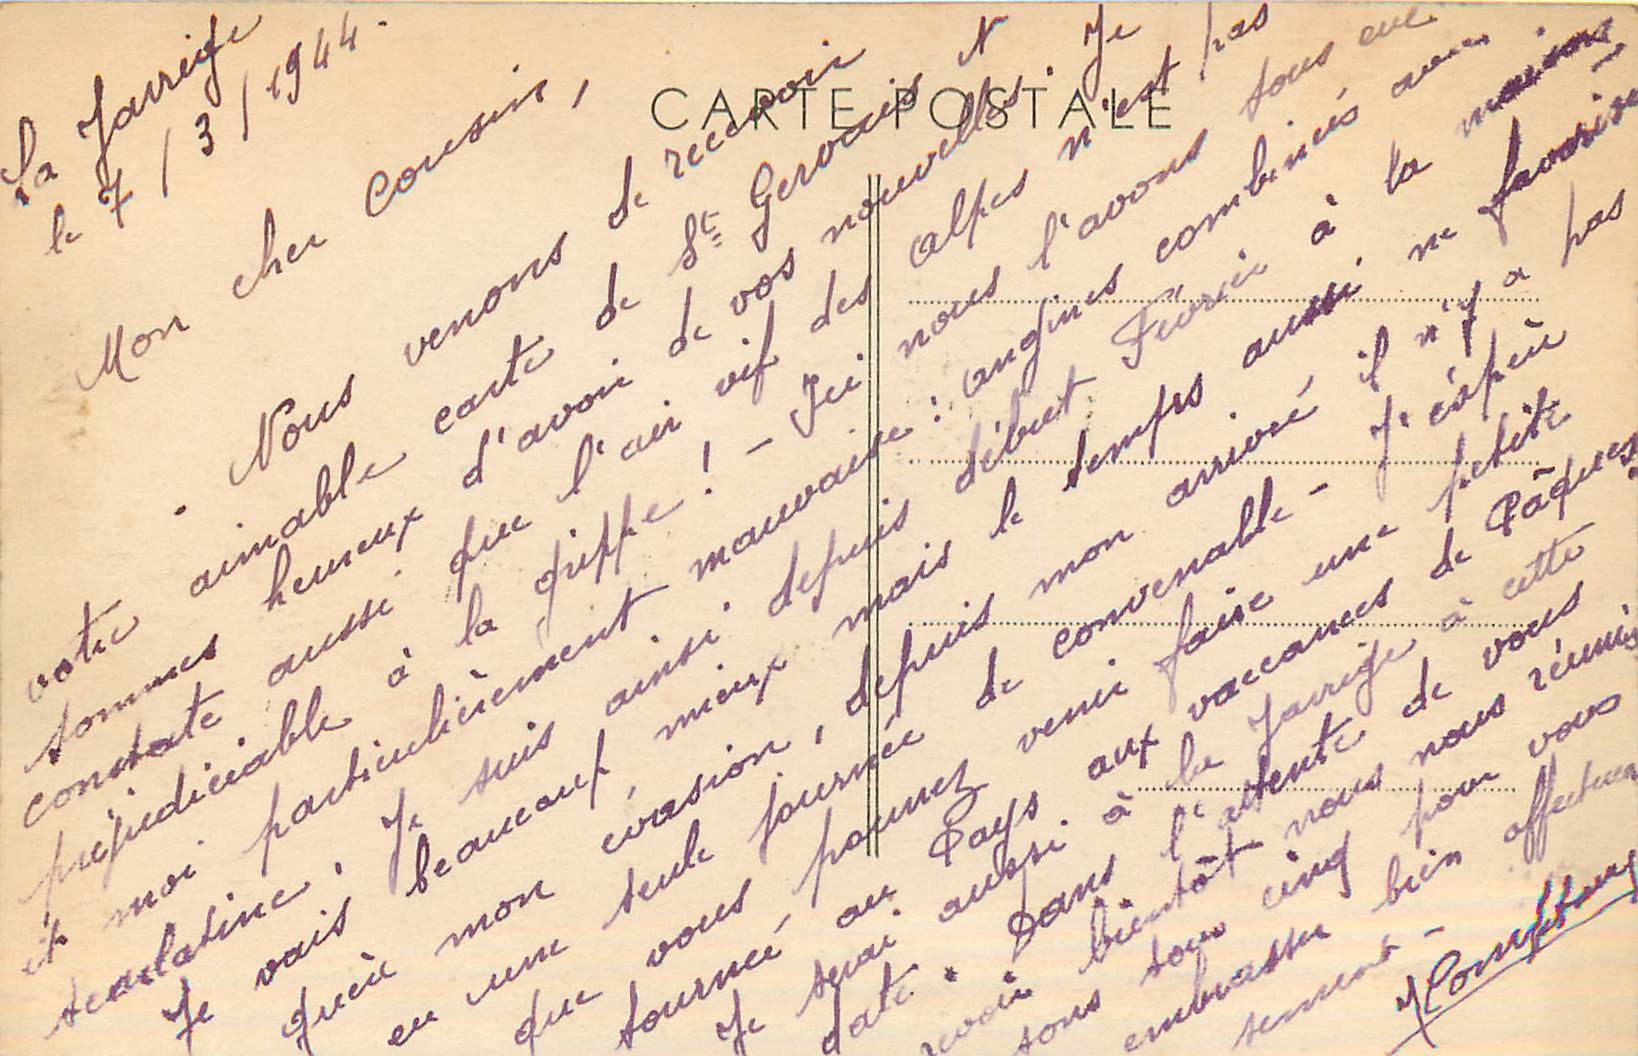 La Jarrige
le 7/3/1944.
CARTE POSTALE
Mon cher cousin,
. Nous venons de recevoir
votre aimable carte de St Gervais et
sommes heureux d'avoir de vos nouvelles. Je
constate aussi que l'air vif des Alpes n'est pas
préjudiciable à la grippe ! - Ici nous l'avons tous eue
et moi particulièrement mauvaise : angines combinées avec
scarlatine. Je suis ainsi depuis début Février à la maison
Je vais beaucoup mieux mais le temps aussi ne favorise
guère mon évasion, depuis mon arrivée il n'y a pas
eu une seule journée de convenable - J'éspère
que vous pourrez venir faire une petite
tournée au Pays aux vaccances de Pâques.
Je serai aussi à la Jarrige à cette
date. Dans l'attente de vous
revoir bientôt nous nous réunis
sons tous cinq pour vous
embrasser bien affectueu
sement -